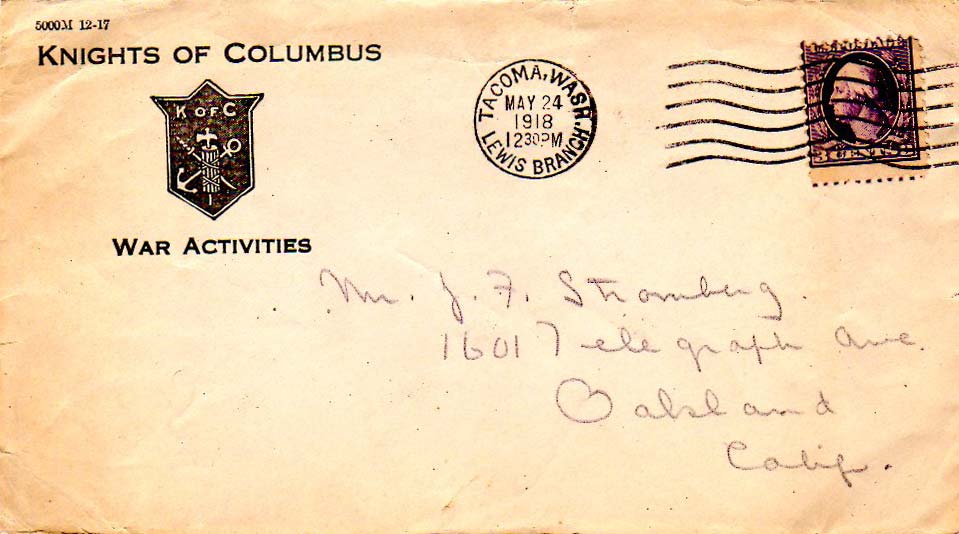 5000M 12-17
KNIGHTS OF COLUMBUS
K OF C
I
WAR ACTIVITIES
TACOMA, WASH.
MAY 24
1918
1230PM
LEWIS BRANCH
Mr. J. F. Stromberg.
1601 Telegraph Ave
Oakland
Calif.